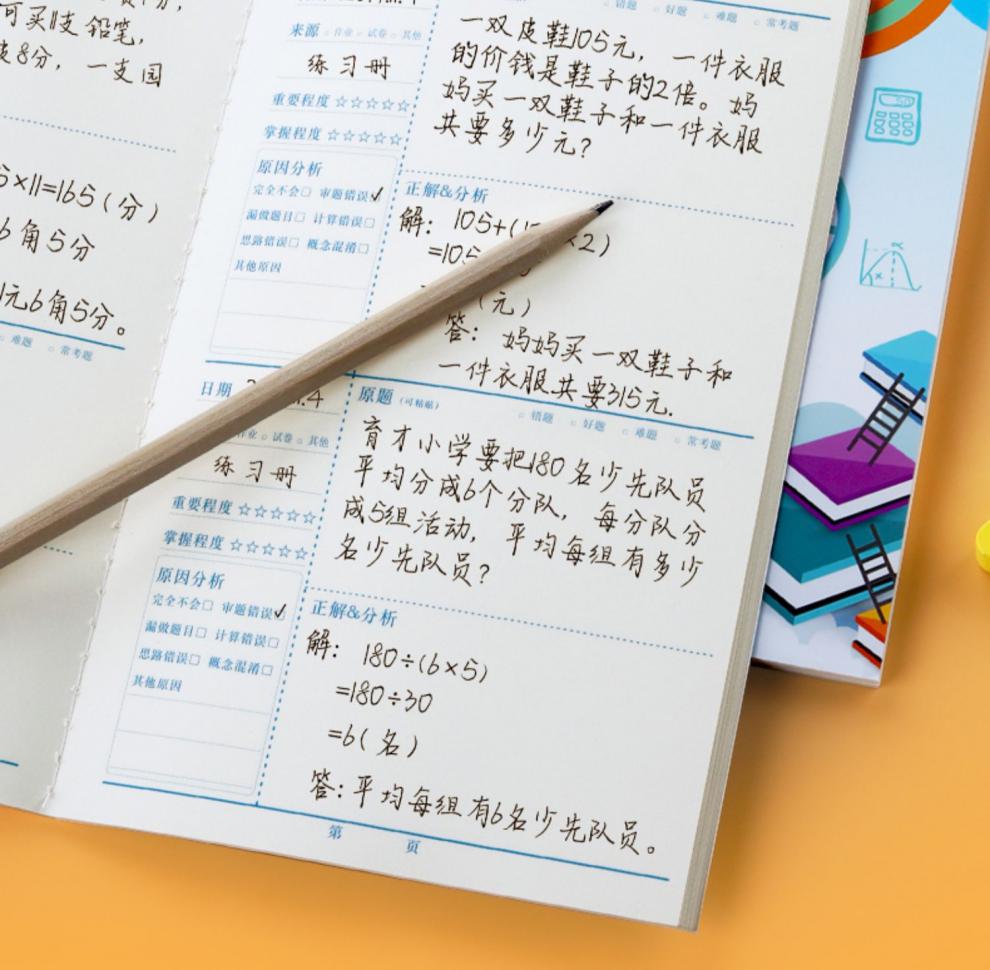 可买11支铅笔，
8分，一支圆
×11=165（分）
6角5分
1元6角5分。
难题 常考题
错题 好题 难题 常考题
来源 作业 试卷 其他
练习册
重要程度 ☆☆☆☆☆
掌握程度 ☆☆☆☆☆
原因分析
完全不会□ 审题错误□✓
漏做题目□ 计算错误□
思路错误□ 概念混淆□
其他原因
一双皮鞋105元，一件衣服
的价钱是鞋子的2倍。妈
妈买一双鞋子和一件衣服
共要多少元？
正解&分析
解：105+(
×2)
=105
（元）
答：妈妈买一双鞋子和
一件衣服共要315元.
日期
.4
作业 试卷 其他
练习册
重要程度 ☆☆☆☆☆
掌握程度 ☆☆☆☆☆
原因分析
完全不会□ 审题错误□✓
漏做题目□ 计算错误□
思路错误□ 概念混淆□
其他原因
原题（可粘贴） 错题 好题 难题 常考题
育才小学要把180名少先队员
平均分成6个分队，每分队分
成5组活动，平均每组有多少
名少先队员？
正解&分析
解：180÷(6×5)
=180÷30
=6（名）
答：平均每组有6名少先队员。
第 页